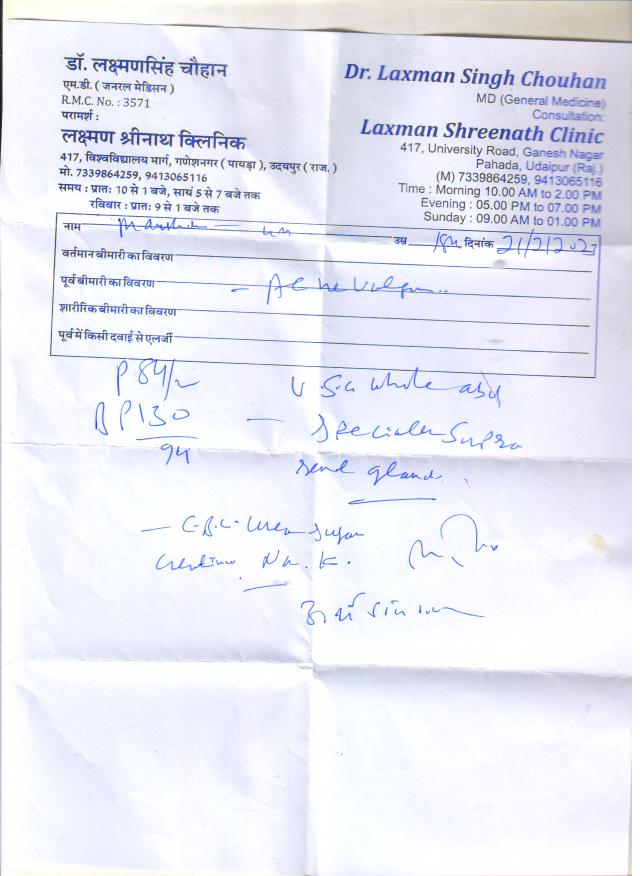 डॉ. लक्ष्मणसिंह चौहान
एम.डी. ( जनरल मेडिसन )
R.M.C. No. : 3571
परामर्श :
लक्ष्मण श्रीनाथ क्लिनिक
417, विश्वविद्यालय मार्ग, गणेशनगर ( पायड़ा ), उदयपुर ( राज. )
मो. 7339864259, 9413065116
समय : प्रातः 10 से 1 बजे, सायं 5 से 7 बजे तक
रविवार : प्रातः 9 से 1 बजे तक
Dr. Laxman Singh Chouhan
MD (General Medicine)
Consultation:
Laxman Shreenath Clinic
417, University Road, Ganesh Nagar
Pahada, Udaipur (Raj.)
(M) 7339864259, 9413065116
Time : Morning 10.00 AM to 2.00 PM
Evening : 05.00 PM to 07.00 PM
Sunday : 09.00 AM to 01.00 PM
नाम उम्र दिनांक 21/2/2023
वर्तमान बीमारी का विवरण
पूर्व बीमारी का विवरण
शारीरिक बीमारी का विवरण
पूर्व में किसी दवाई से एलर्जी
P 84/
BP 130
94
U.S.G whole abd
Supra
renal gland
C.B.C. Urea Sugar
Na. K.